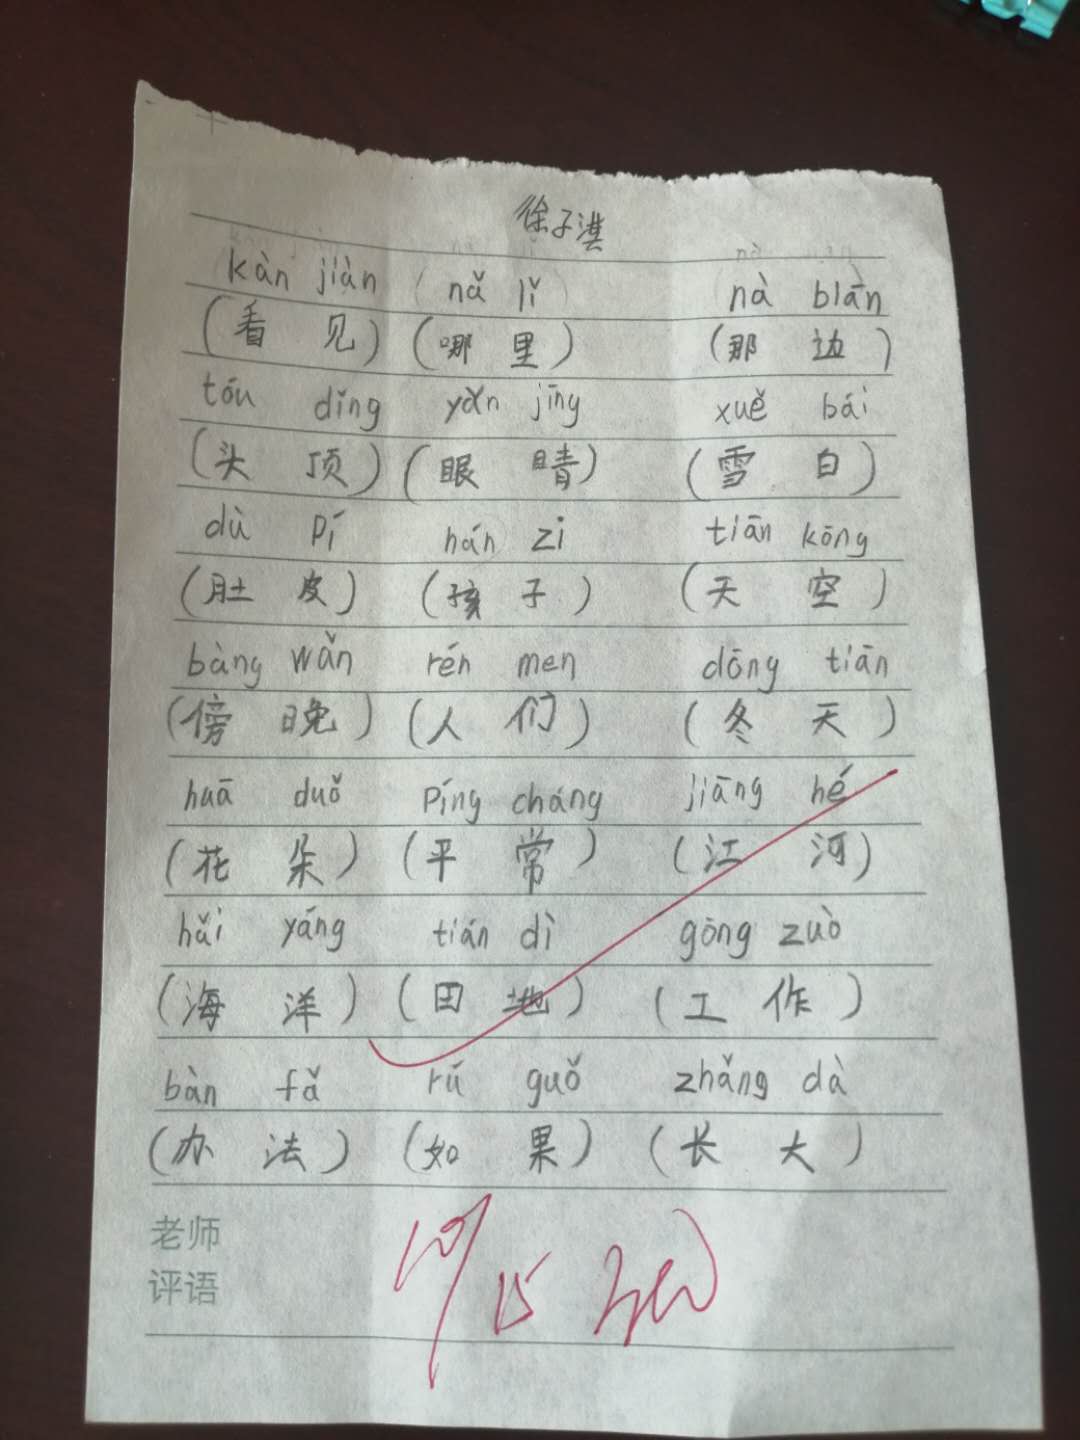 徐子淇
kàn jiàn nǎ lǐ nà biān
(看 见) (哪 里) (那 边)
tóu dǐng yǎn jīng xuě bái
(头 顶) (眼 睛) (雪 白)
dù pí hái zi tiān kōng
(肚 皮) (孩 子) (天 空)
bàng wǎn rén men dōng tiān
(傍 晚) (人 们) (冬 天)
huā duǒ píng cháng jiāng hé
(花 朵) (平 常) (江 河)
hǎi yáng tián dì gōng zuò
(海 洋) (田 地) (工 作)
bàn fǎ rú guǒ zhǎng dà
(办 法) (如 果) (长 大)
老师
评语